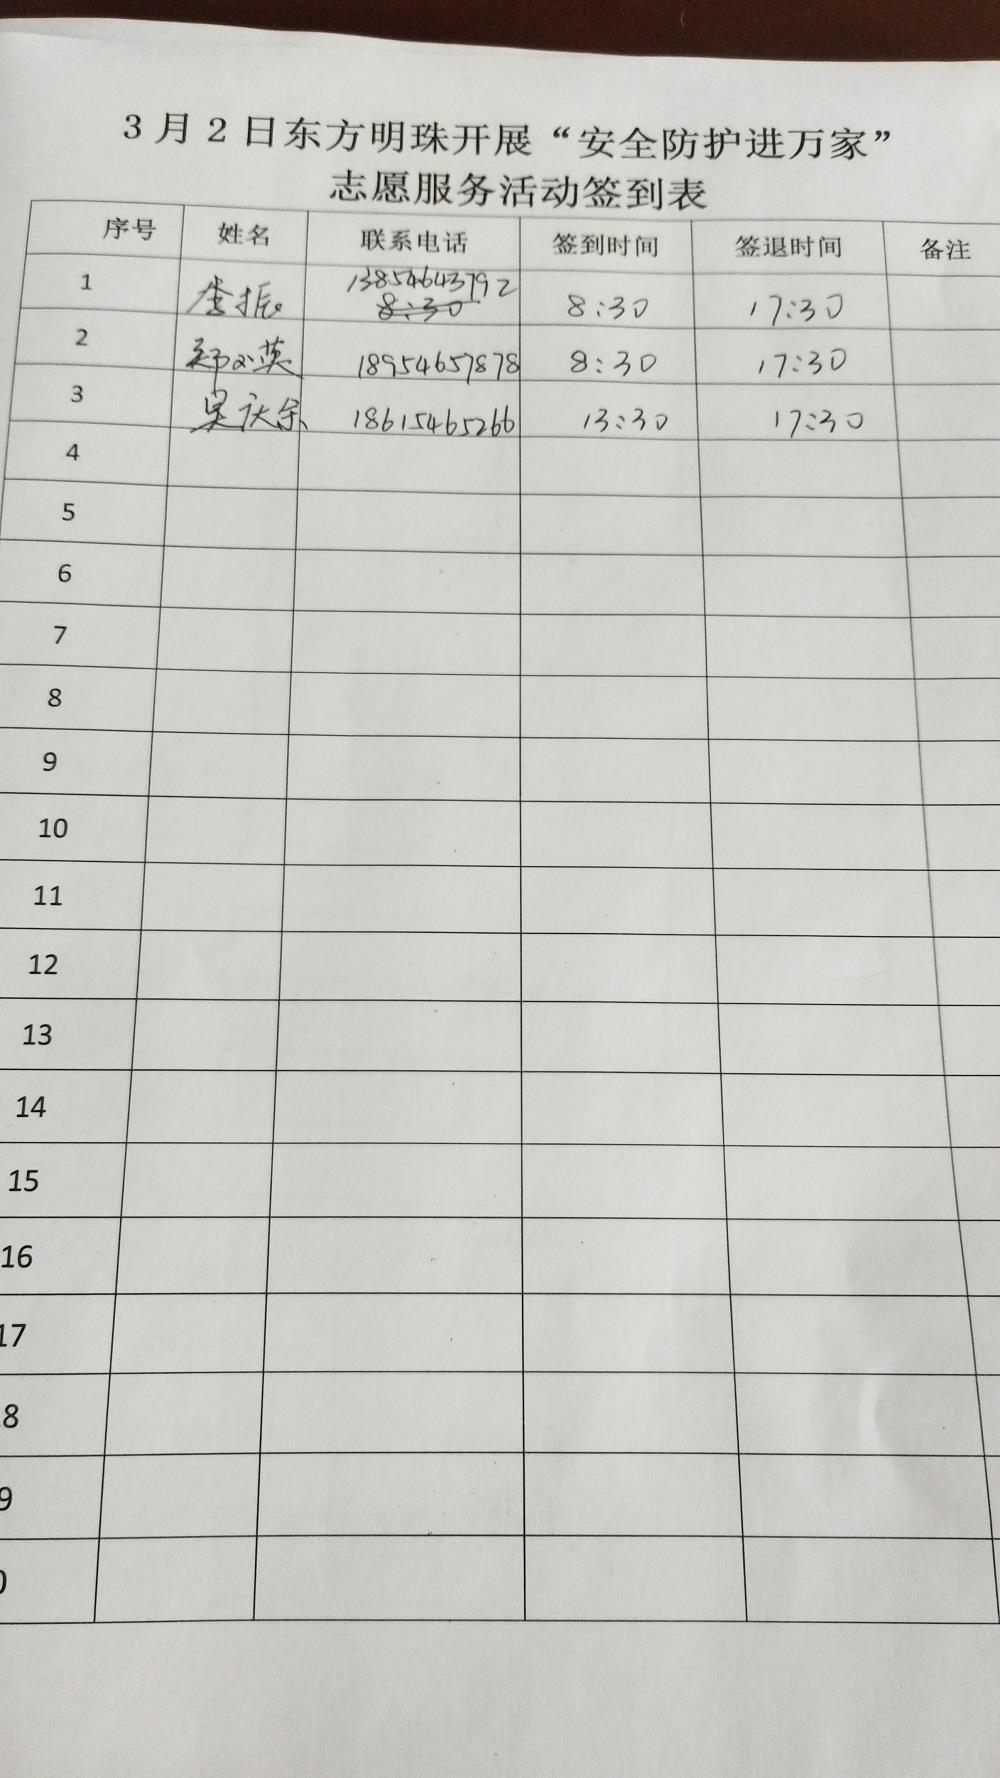 3月2日东方明珠开展“安全防护进万家”
志愿服务活动签到表
序号 姓名 联系电话 签到时间 签退时间 备注
1 李振 13854643792 8:30 17:30
8:30
2 郑小英 18954657878 8:30 17:30
3 吴庆余 18615465266 13:30 17:30
4
5
6
7
8
9
10
11
12
13
14
15
16
17
8
9
0